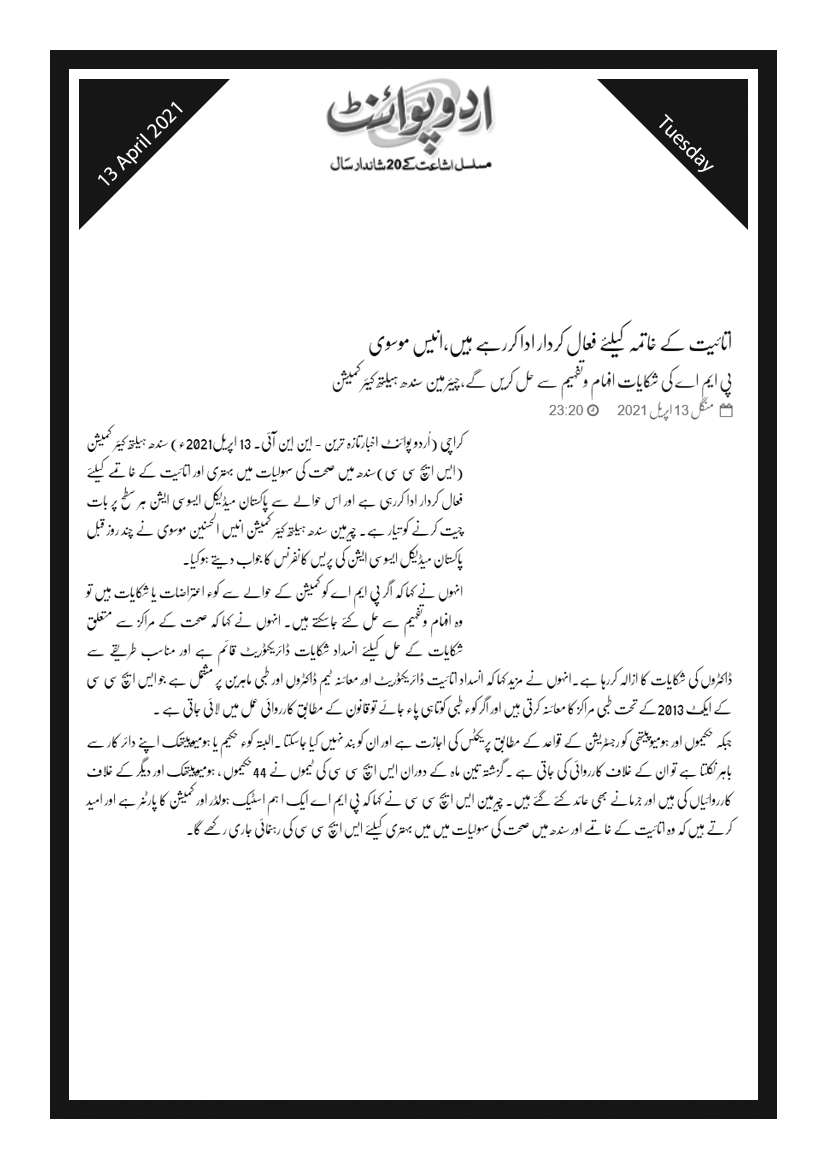 13 April 2021
Tuesday
اردوپوائنٹ
مسلسل اشاعت کے20شاندار سال
اتائیت کے خاتمہ کیلئے فعال کردار ادا کررہے ہیں،انیس موسوی
پی ایم اے کی شکایات افہام وتفہیم سے حل کریں گے، چیئرمین سندھ ہیلتھ کیئر کمیشن
منگل 13 اپریل 2021 23:20
کراچی (اُردو پوائنٹ اخبارتازہ ترین - این این آئی۔ 13 اپریل2021ء) سندھ ہیلتھ کیئر کمیشن
(ایس ایچ سی سی)سندھ میں صحت کی سہولیات میں بہتری اور اتائیت کے خاتمے کیلئے
فعال کردار ادا کررہی ہے اور اس حوالے سے پاکستان میڈیکل ایسوسی ایشن ہر سطح پر بات
چیت کرنے کو تیار ہے۔ چیرمین سندھ ہیلتھ کیئر کمیشن انیس الحسنین موسوی نے چند روز قبل
پاکستان میڈیکل ایسوسی ایشن کی پریس کانفرنس کا جواب دیتے ہوکیا۔
انہوں نے کہا کہ اگر پی ایم اے کو کمیشن کے حوالے سے کوء اعتراضات یا شکایات ہیں تو
وہ افہام وتفہیم سے حل کئے جاسکتے ہیں۔ انہوں نے کہا کہ صحت کے مراکز سے متعلق
شکایات کے حل کیلئے انسداد شکایات ڈائریکٹوریٹ قائم ہے اور مناسب طریقے سے
ڈاکٹروں کی شکایات کا ازالہ کررہا ہے۔انہوں نے مزید کہا کہ انسداد اتائیت ڈائریکٹوریٹ اور معائنہ ٹیم ڈاکٹروں اور طبی ماہرین پر مشتمل ہے جو ایس ایچ سی سی
کے ایکٹ 2013کے تحت طبی مراکز کا معائنہ کرتی ہیں اور اگر کوء طبی کوتاہی پاء جائے تو قانون کے مطابق کارروائی عمل میں لائی جاتی ہے ۔
جبکہ حکیموں اور ہومیوپیتھی کو رجسٹریشن کے قواعد کے مطابق پریکٹس کی اجازت ہے اور ان کو بند نہیں کیا جاسکتا ۔البتہ کوء حکیم یا ہومیوپیتھک اپنے دائر کار سے
باہر نکلتا ہے تو ان کے خلاف کارروائی کی جاتی ہے ۔ گزشتہ تین ماہ کے دوران ایس ایچ سی سی کی ٹیموں نے 44حکیموں ، ہومیوپیتھک اور دیگر کے خلاف
کارروائیاں کی ہیں اور جرمانے بھی عائد کئے گئے ہیں۔ چیرمین ایس ایچ سی سی نے کہا کہ پی ایم اے ایک ا ہم اسٹیک ہولڈر اور کمیشن کا پارٹنر ہے اور امید
کرتے ہیں کہ وہ اتائیت کے خاتمے اور سندھ میں صحت کی سہولیات میں میں بہتری کیلئے ایس ایچ سی سی کی رہنمائی جاری رکھے گا۔